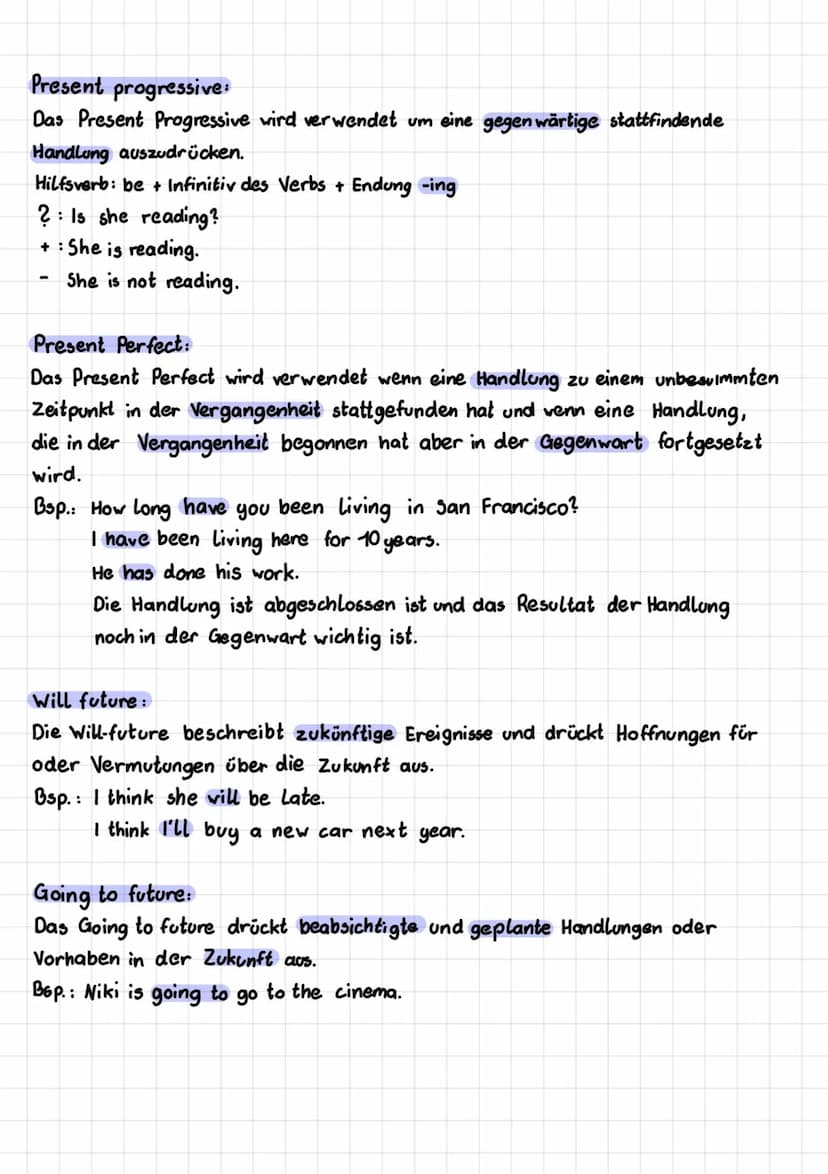 Present progressive:
Das Present Progressive wird verwendet um eine gegenwärtige stattfindende
Handlung auszudrücken.
Hilfsverb: be + Infinitiv des Verbs + Endung -ing
? : Is she reading?
+ : She is reading.
- She is not reading.
Present Perfect:
Das Present Perfect wird verwendet wenn eine Handlung zu einem unbesimmten
Zeitpunkt in der Vergangenheit stattgefunden hat und wenn eine Handlung,
die in der Vergangenheit begonnen hat aber in der Gegenwart fortgesetzt
wird.
Bsp.: How long have you been living in San Francisco?
I have been living here for 10 years.
He has done his work.
Die Handlung ist abgeschlossen ist und das Resultat der Handlung
noch in der Gegenwart wichtig ist.
Will future:
Die Will-future beschreibt zukünftige Ereignisse und drückt Hoffnungen für
oder Vermutungen über die Zukunft aus.
Bsp.: I think she will be late.
I think I'll buy a new car next year.
Going to future:
Das Going to future drückt beabsichtigte und geplante Handlungen oder
Vorhaben in der Zukunft aus.
Bsp.: Niki is going to go to the cinema.